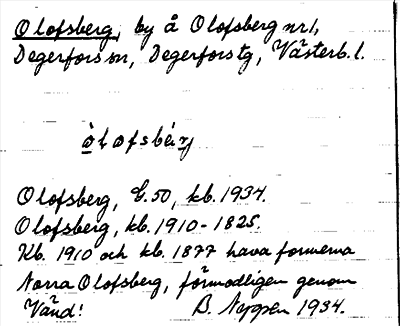 Olofsberg, by å Olofsberg nr 1,
Degerfors sn, Degerfors tg, Västerb. l.
òlofsbérj
Olofsberg, G. 50, kb. 1934.
Olofsberg, kb. 1910-1825.
Kb. 1910 och kb. 1877 hava formerna
Norra Olofsberg, förmodligen genom
Vänd! B. Nygren 1934.